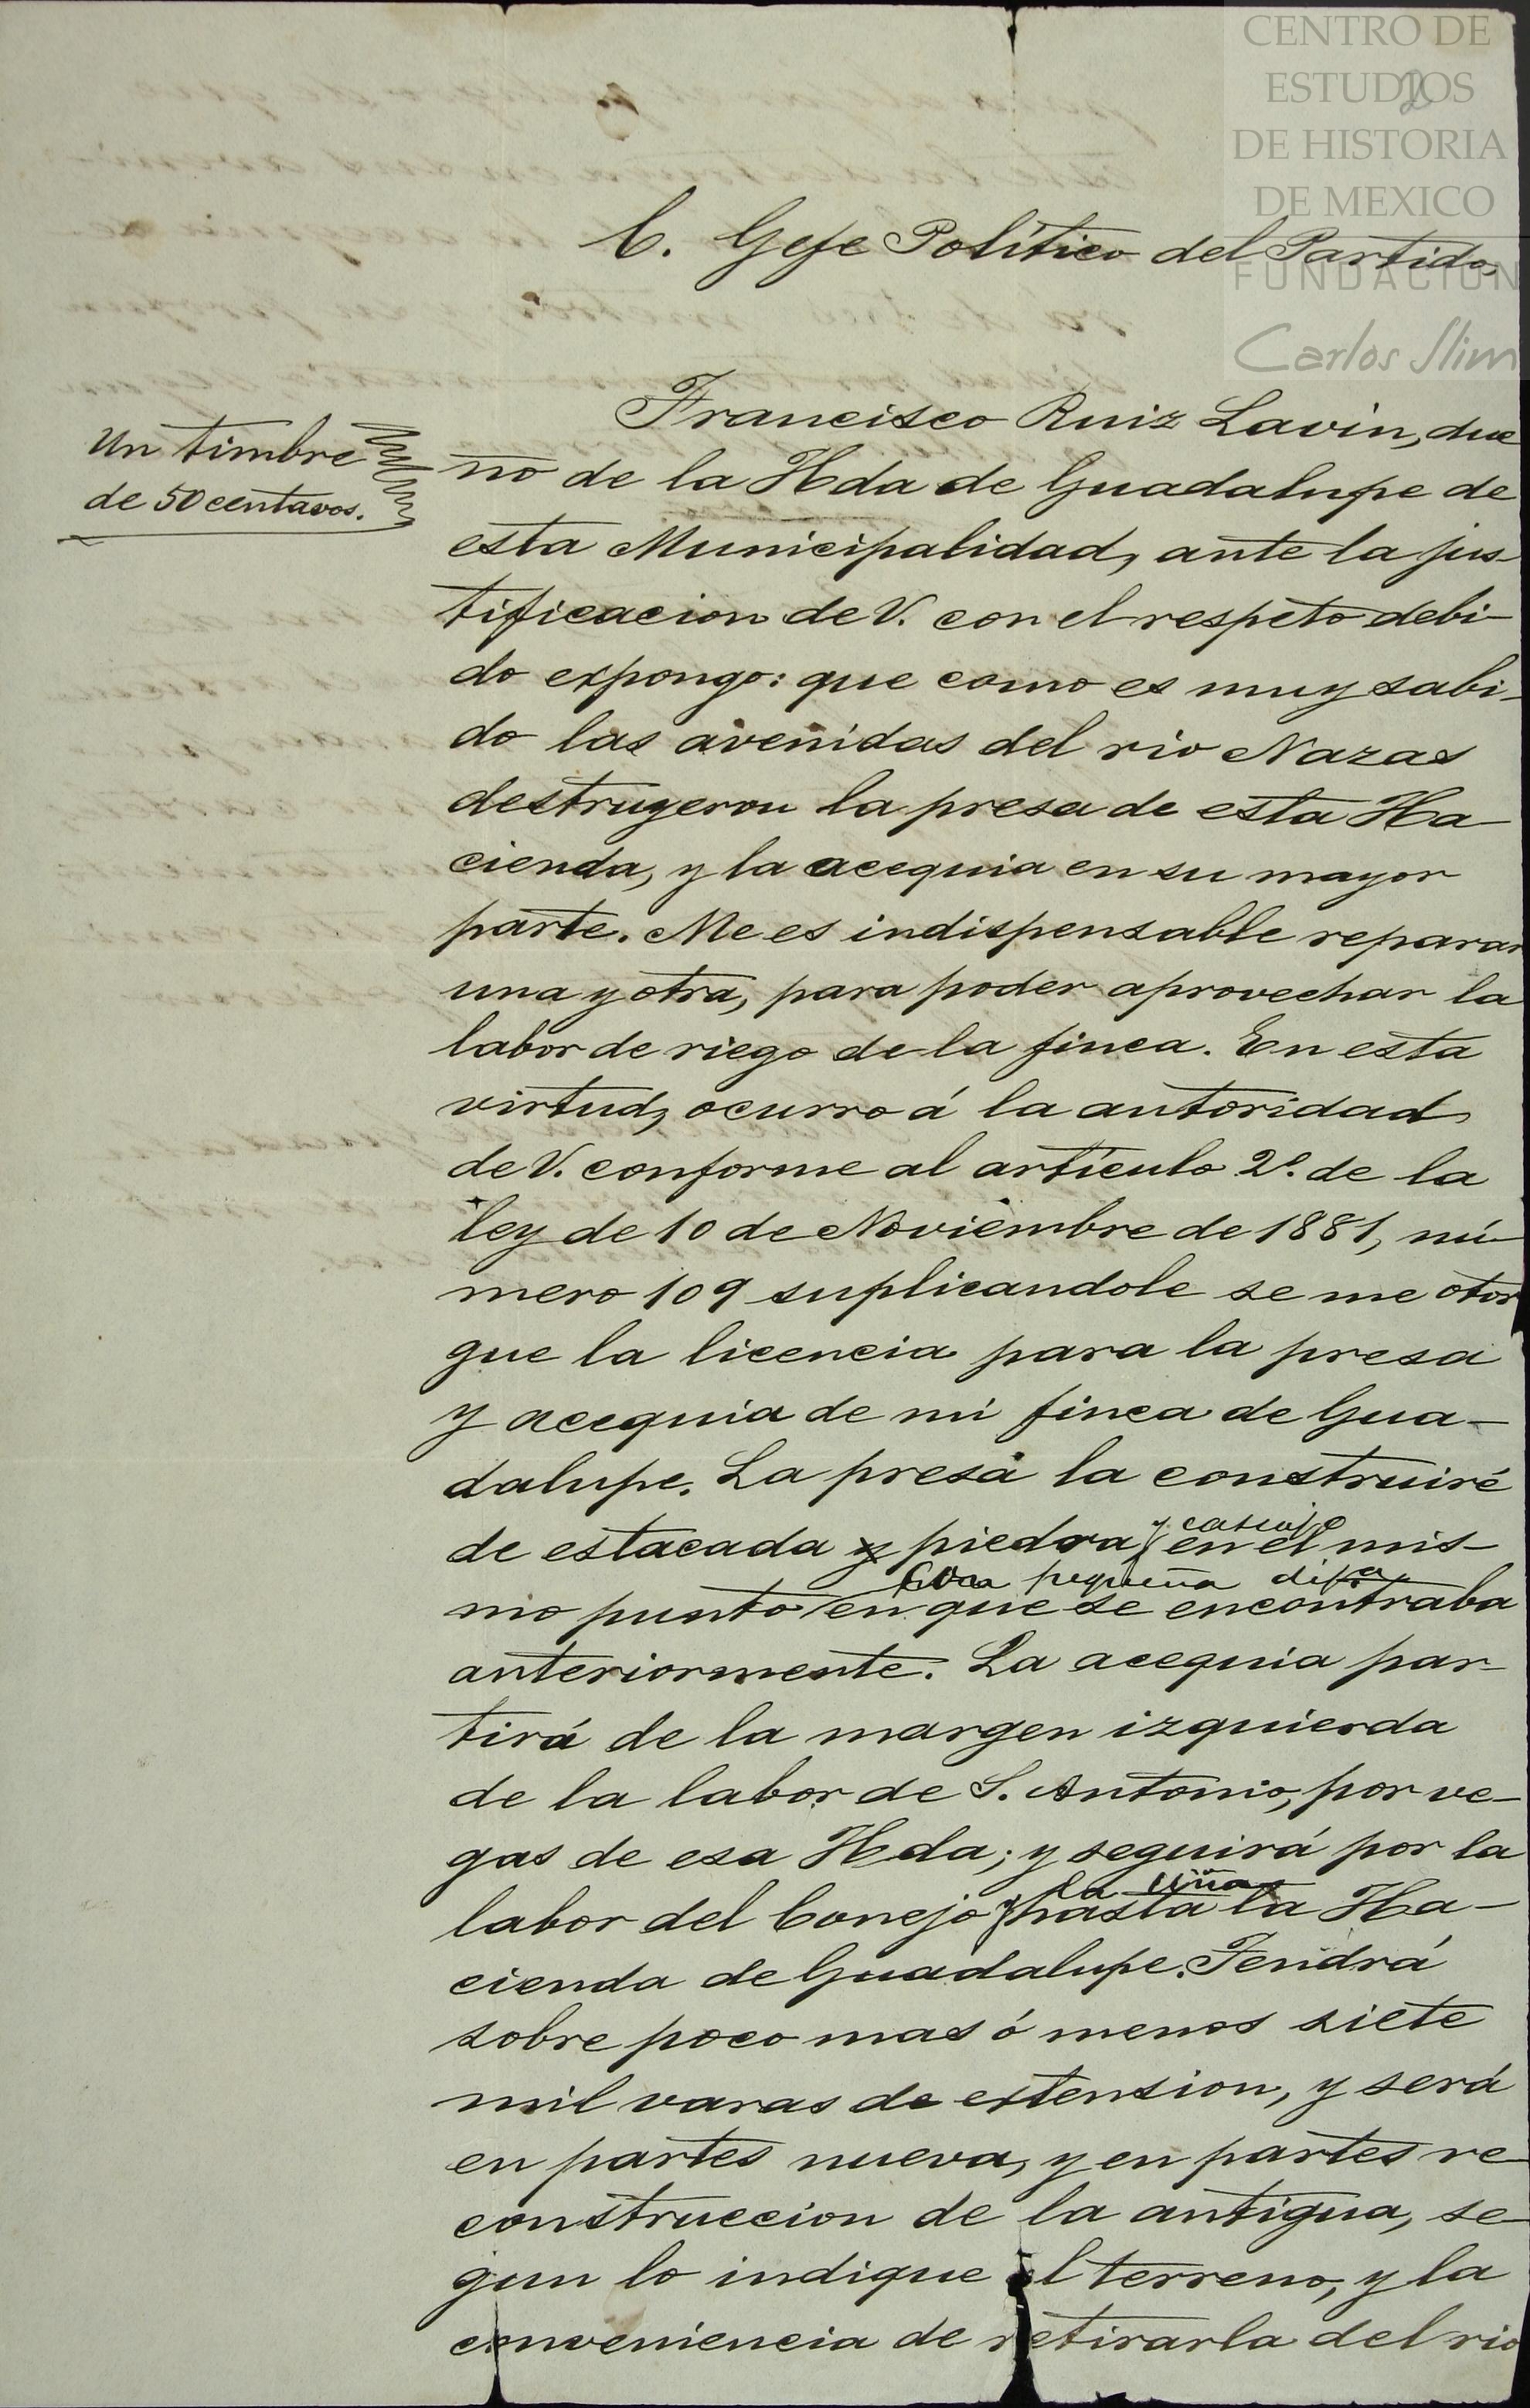 CENTRO DE
ESTUDIOS
DE HISTORIA
DE MEXICO
FUNDACION
Carlos Slim
C. Gefe Político del Partido.
Un timbre
de 50 centavos.
Francisco Ruiz Lavin, due
ño de la Hda de Guadalupe de
esta Municipalidad, ante la jus-
tificacion de V. con el respeto debi-
do expongo: que como es muy sabi-
do las avenidas del rio Nazas
destrugeron la presa de esta Ha-
cienda, y la acequia en su mayor
parte. Me es indispensable reparar
una y otra, para poder aprovechar la
labor de riego de la finca. En esta
virtud, ocurro á la autoridad
de V. conforme al artículo 2º. de la
ley de 10 de Noviembre de 1881, nú-
mero 109 suplicandole se me otor
gue la licencia para la presa
y acequia de mi finca de Gua-
dalupe. La presa la construiré
y cascajo
de estacada y piedra, en el mis-
pequeña
mo punto en que se encontraba
anteriormente. La acequia par-
tirá de la margen izquierda
de la labor de S. Antonio, por ve-
gas de esa Hda; y seguirá por la
y la
labor del Conejo hasta la Ha-
cienda de Guadalupe. Tendrá
sobre poco mas ó menos siete
mil varas de extension, y será
en partes nueva, y en partes re-
construccion de la antigua, se-
gun lo indique el terreno, y la
conveniencia de retirarla del rio